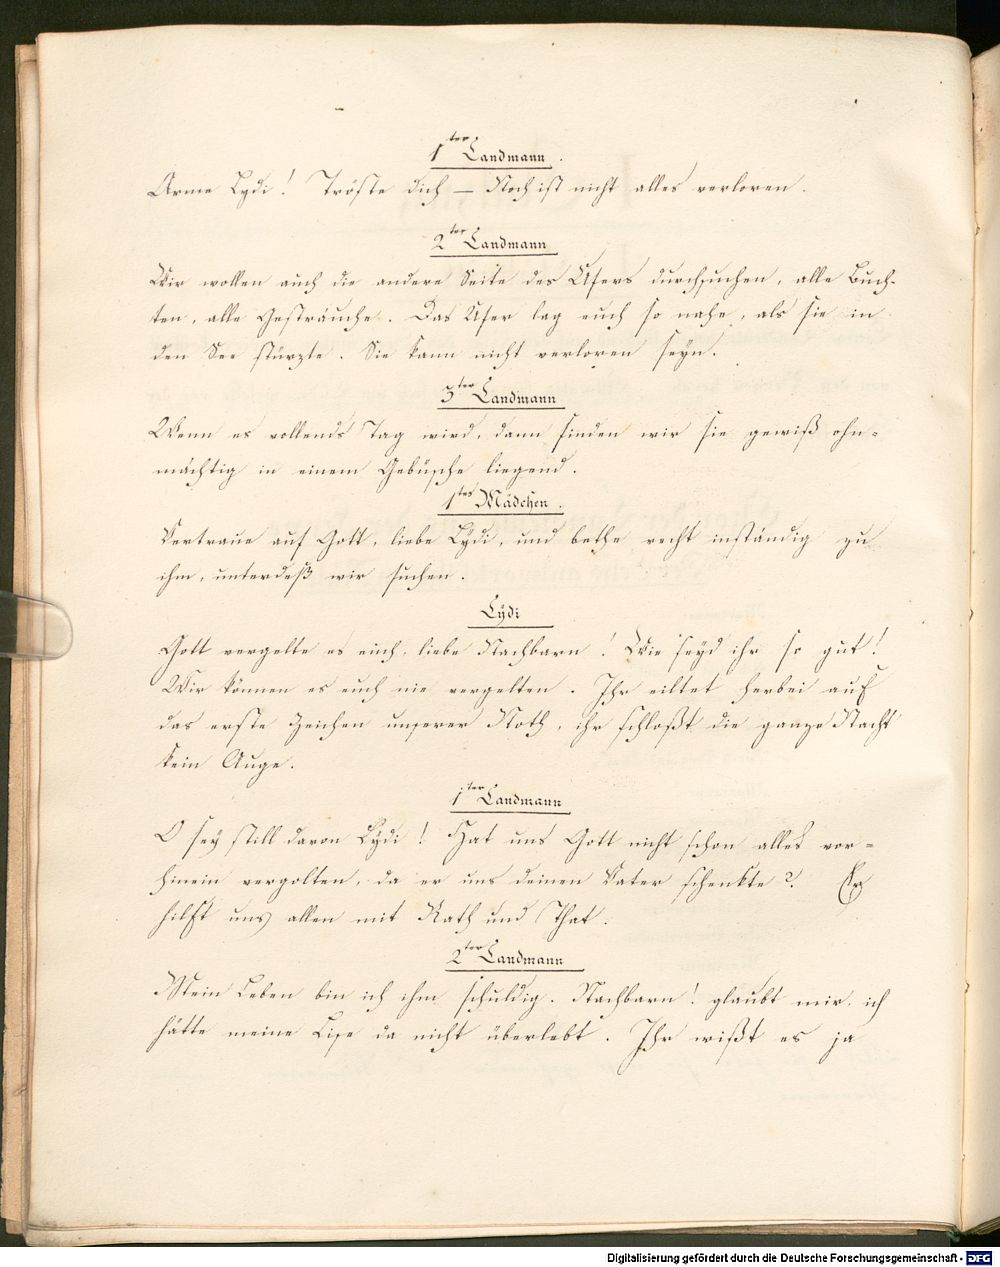 1ter Landmann.
Arme Lydi! Tröste dich — Noch ist nicht alles verloren.
2ter Landmann
Wir wollen auch die andere Seite des Ufers durchsuchen, alle Buch-
ten, alle Gesträuche. Das Ufer lag euch so nahe, als sie in
den See stürzte. Sie kann nicht verloren seyn.
3ter Landmann
Wenn es vollends Tag wird, dann finden wir sie gewiß ohn-
mächtig in einem Gebüsche liegend.
1tes Mädchen.
Vertraue auf Gott, liebe Lÿdi, und bethe recht inständig zu
ihm, unterdeß wir suchen.
Lÿdi
Gott vergelte es euch, liebe Nachbarn! Wie seyd ihr so gut!
Wir können es euch nie vergelten. Ihr eiltet herbei auf
das erste Zeichen unserer Noth, ihr schloßt die ganze Nacht
kein Auge.
1ter Landmann
O sey still davon Lÿdi! Hat uns Gott nicht schon alles vor-
hinein vergolten, da er uns deinen Vater schenkte? Er
hilft uns allen mit Rath und That.
2ter Landmann
Mein Leben bin ich ihm schuldig. Nachbarn! glaubt mir, ich
hätte meine Lise da nicht überlebt. Ihr wißt es ja
Digitalisierung gefördert durch die Deutsche Forschungsgemeinschaft - DFG